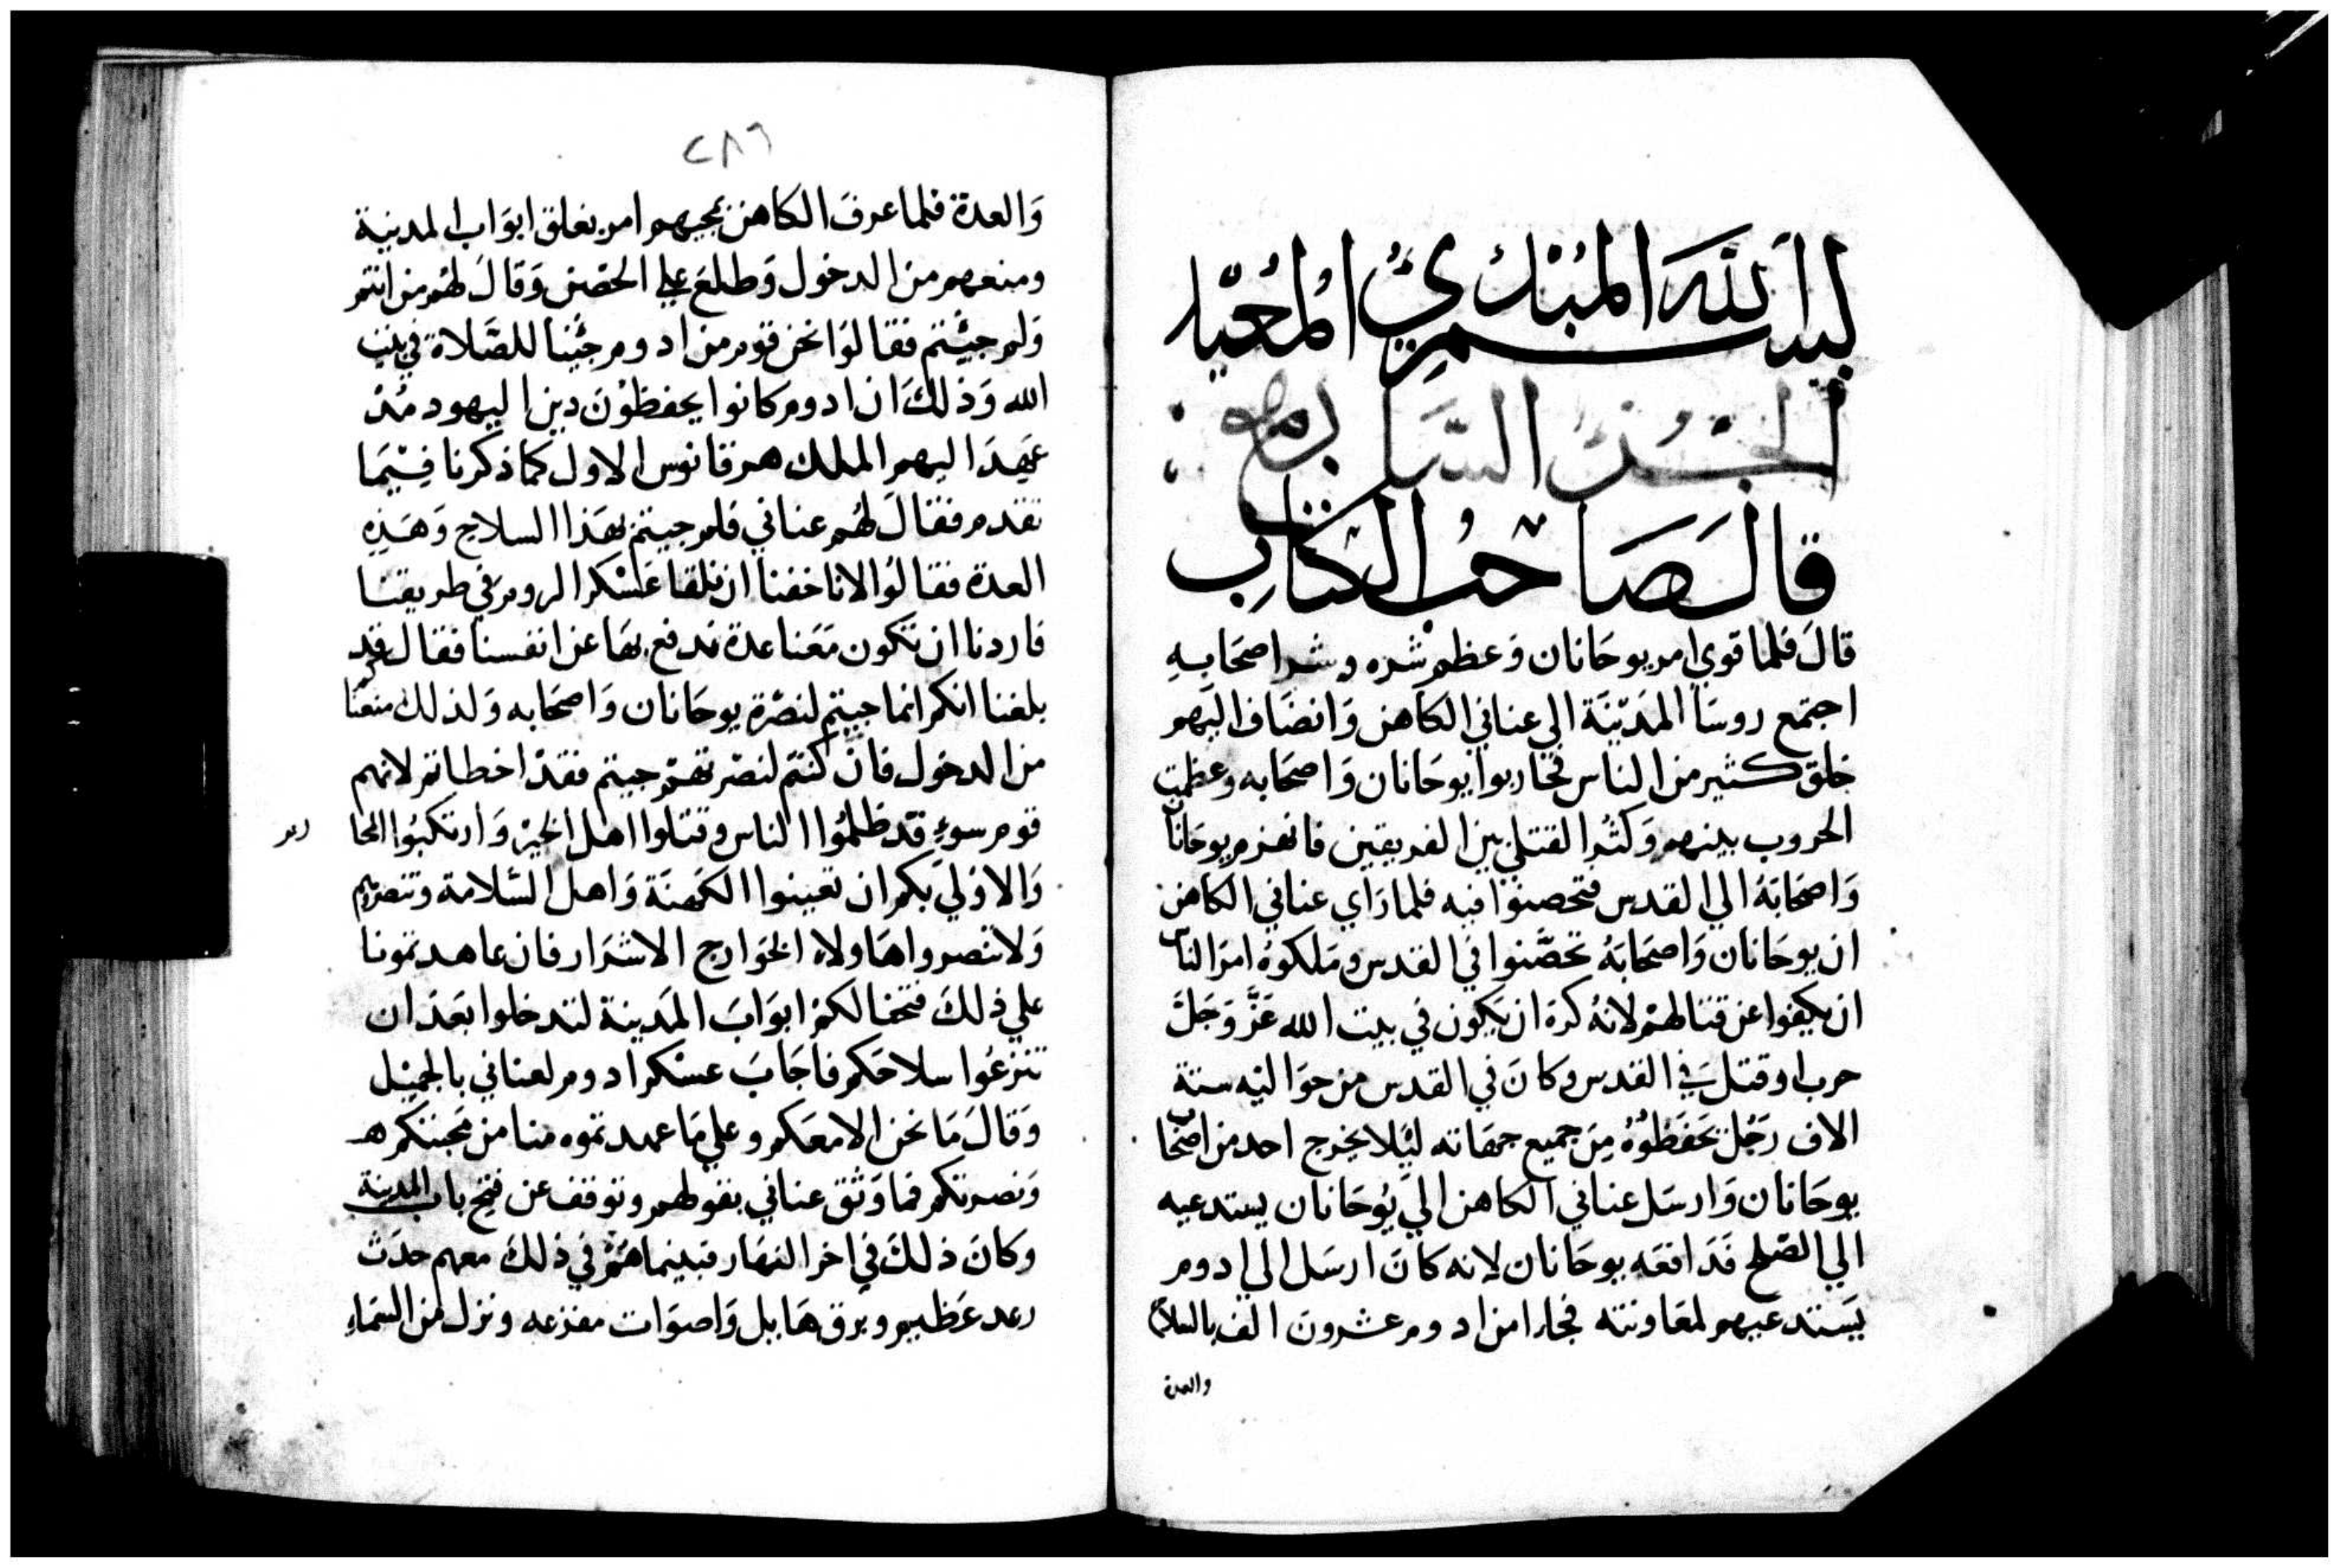 بسم الله المبدئ المعيد
الجزؤ السابع
قال صاحب الكتاب
قالَ فلما قوي امر يوحانان وَعظم شره وشر اصحَابهِ
اجتمع روسَا المَديْنَة الي عناني الكاهن وَانضَاف اليَهم
خلق كثير من الناس فحَاربوا يوحَانان وَاصحَابه وعظمت
الحروب بينهم وَكثُر القتلي بين الفريقين فانهزم يوحَانان
وَاصحَابَهُ الي القدس فتحصنوُا فيه فلما رَاي عناني الكاهن
ان يوحَانان وَاصحَابَهُ تحصَّنوا في القدس ومَلكوهُ امرَ الناس
ان يكفوا عن قتالهمْ لانهُ كرهَ ان يكون في بيت الله عَزَّ وَجَلَّ
حرب او قتل في القدس وكانَ في القدس من حوَاليْه ستة
الاف رَجُل يَحَفَظوُهُ مِن جميع جهَاته ليُلا يخرج احد من اصحَاب
يوحَانان وَارسَل عناني الكاهن اليَ يُوحَانان يستدعيه
الي الصّلح فَدَافعَه يوحَانان لانه كانَ ارسَل الي ادوم
يَستدعيهم لمعَاونته فجَاء من ادوم عشرون الف بالسلاح
والعدة
٢٨٦
وَالعدة فلما عرفَ الكاهن بمجيهم امر بغلق ابوَاب المدينة
ومنعهم من الدخول وَطلعَ علي الحصْن وَقالَ لهُم من انتم
وَلم جيُتم فقالوَا نحن قوم من ادوم جيُنا للصَّلاة في بيت
الله وَذلكَ ان ادوم كانوا يحفظوْنَ دين اليهود مُذْ
عَهِدَ اليهم الملك هرقانوس الاول كما ذكرنا فِيْمَا
تقدم فقالَ لهُم عناني فلم جيتم بهَذا السلاح وَهَذِهِ
العدة فقالوُا لانا خفنا ان نلقا عَسْكر الروم في طريقنا
فاردنا ان تكون مَعَنا عدة ندفع بهَا عن انفسنا فقال قد
بلغنا انكم انما جيتم لنصْرة يوحَانان وَاصحَابه وَلذلك منعنَاكم
من الدخول فانْ كنتم لنصْرتهمْ جيتم فقدْ اخطاتم لانهم
قوم سوءٍ قدْ ظلمُوا الناس وقتلوا اهل الخيْر وَارتكبوُا المحا
رم
وَالاوْلي بكم ان تعينوا الكَهنَة وَاهل السّلامة وتنصروهم
وَلا تنصروا هَاولاء الخوَارج الاشرَار فان عاهدتمونا
علي ذلكَ فتحنا لكمْ ابوَابَ المَدينة لتدخلوا بَعَد ان
تنزعُوا سلاحَكم فاجَابَ عسْكر ادوم لعناني بالجميْل
وَقالَ مَا نحن الا معَكم وعلي مَا عهدتموه منا من محبتكم
وَنصرتكم فما وَثق عناني بقولهم وتوقف عن فتح باب المدينة
وكانَ ذلكَ في اخر النهَار فبينما همْ في ذلكَ معهم حدَث
رعد عَظيم وبرق هَايل وَاصوَات مفزعه ونزل من السَماءِ